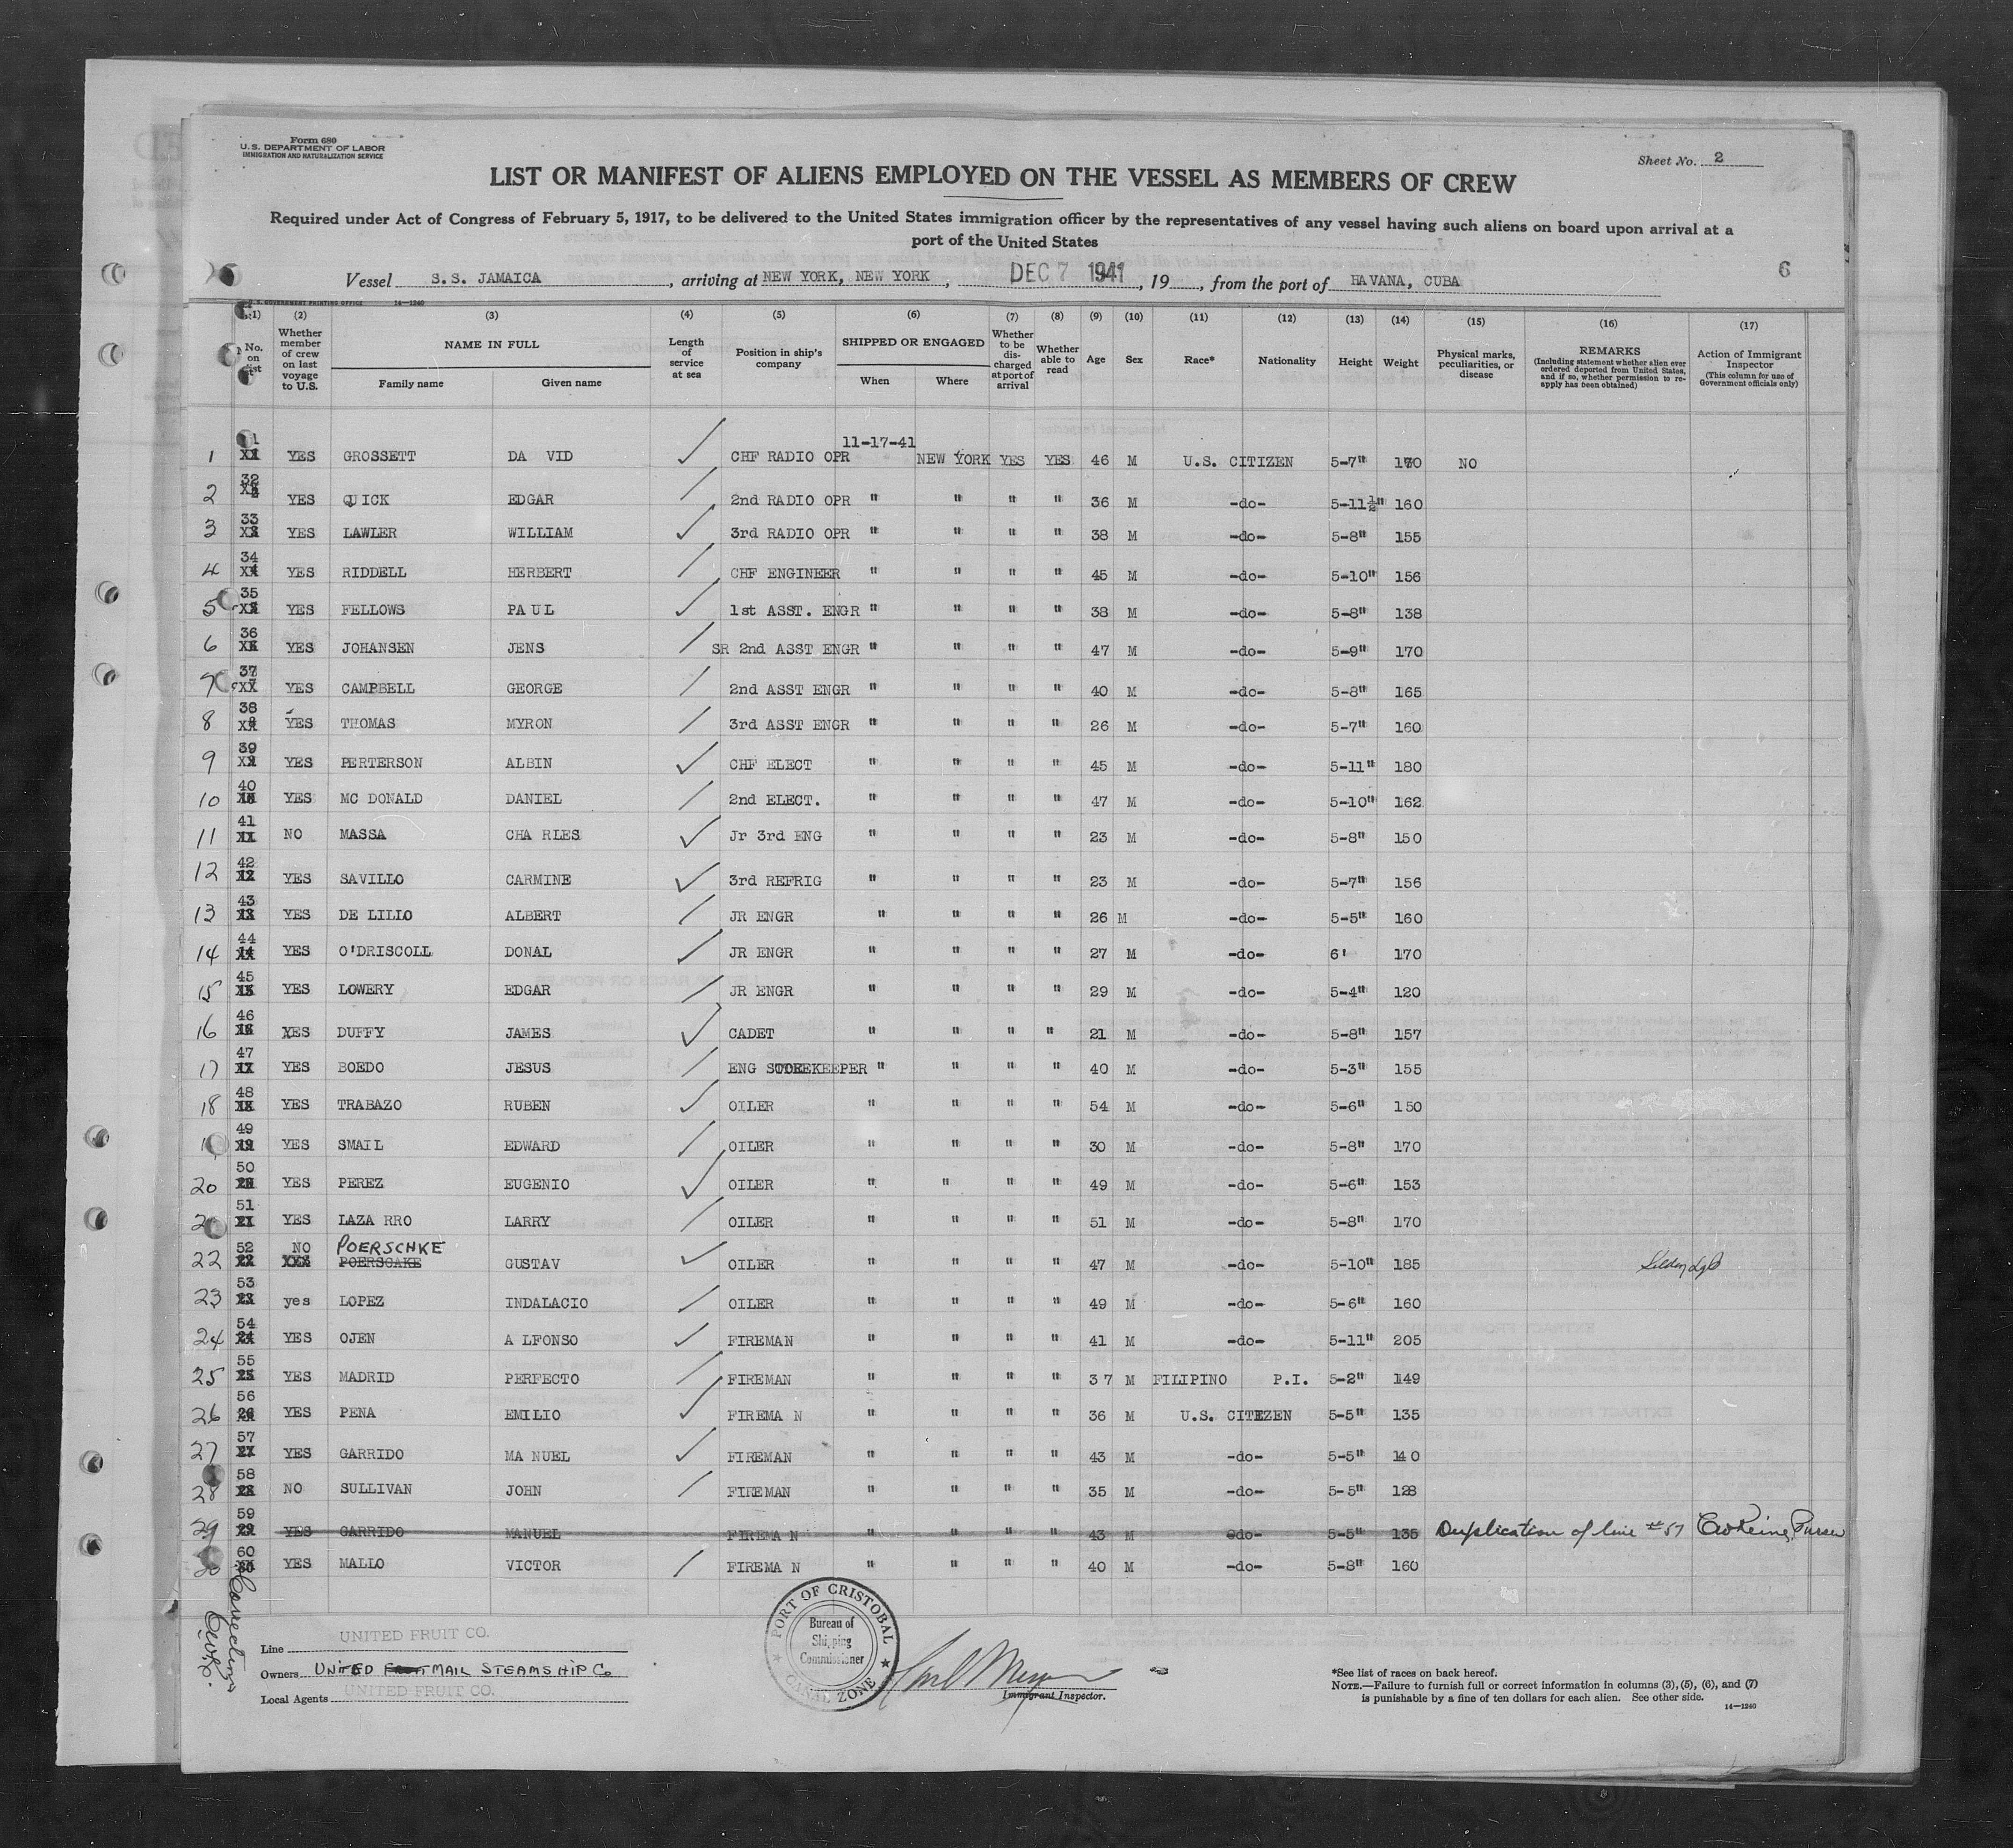 Form 680
U.S. DEPARTMENT OF LABOR
IMMIGRATION AND NATURALIZATION SERVICE
Sheet No. 2
LIST OR MANIFEST OF ALIENS EMPLOYED ON THE VESSEL AS MEMBERS OF CREW
Required under Act of Congress of February 5, 1917, to be delivered to the United States immigration officer by the representatives of any vessel having such aliens on board upon arrival at a
port of the United States
Vessel S.S. JAMAICA, arriving at NEW YORK, NEW YORK, DEC 7 1941, 19, from the port of HAVANA, CUBA
6
U.S. GOVERNMENT PRINTING OFFICE 14—1240
(1) (2) (3) (4) (5) (6) (7) (8) (9) (10) (11) (12) (13) (14) (15) (16) (17)
No. on list
Whether member of crew on last voyage to U.S.
NAME IN FULL
Family name Given name
Length of service at sea
Position in ship's company
SHIPPED OR ENGAGED
When Where
Whether to be discharged at port of arrival
Whether able to read
Age Sex Race* Nationality Height Weight
Physical marks, peculiarities, or disease
REMARKS
(Including statement whether alien ever ordered deported from United States, and if so, whether permission to re-apply has been obtained)
Action of Immigrant Inspector
(This column for use of Government officials only)
11-17-41
1 YES GROSSETT DA VID CHF RADIO OPR NEW YORK YES YES 46 M U.S. CITIZEN 5-7" 170 NO
2 32 YES QUICK EDGAR 2nd RADIO OPR " " " " 36 M -do- 5-11½" 160
3 33 YES LAWLER WILLIAM 3rd RADIO OPR " " " " 38 M -do- 5-8" 155
4 34 YES RIDDELL HERBERT CHF ENGINEER " " " " 45 M -do- 5-10" 156
5 35 YES FELLOWS PAUL 1st ASST. ENGR " " " " 38 M -do- 5-8" 138
6 36 YES JOHANSEN JENS SR 2nd ASST ENGR " " " " 47 M -do- 5-9" 170
7 37 YES CAMPBELL GEORGE 2nd ASST ENGR " " " " 40 M -do- 5-8" 165
8 38 YES THOMAS MYRON 3rd ASST ENGR " " " " 26 M -do- 5-7" 160
9 39 YES PERTERSON ALBIN CHF ELECT " " " " 45 M -do- 5-11" 180
10 40 YES MC DONALD DANIEL 2nd ELECT. " " " " 47 M -do- 5-10" 162
11 41 NO MASSA CHA RLES Jr 3rd ENG " " " " 23 M -do- 5-8" 150
12 42 YES SAVILLO CARMINE 3rd REFRIG " " " " 23 M -do- 5-7" 156
13 43 YES DE LILLO ALBERT JR ENGR " " " " 26 M -do- 5-5" 160
14 44 YES O'DRISCOLL DONAL JR ENGR " " " " 27 M -do- 6' 170
15 45 YES LOWERY EDGAR JR ENGR " " " " 29 M -do- 5-4" 120
16 46 YES DUFFY JAMES CADET " " " " 21 M -do- 5-8" 157
17 47 YES BOEDO JESUS ENG STOREKEEPER " " " " 40 M -do- 5-3" 155
18 48 YES TRABAZO RUBEN OILER " " " " 54 M -do- 5-6" 150
49 YES SMAIL EDWARD OILER " " " " 30 M -do- 5-8" 170
20 50 YES PEREZ EUGENIO OILER " " " " 49 M -do- 5-6" 153
51 YES LAZA RRO LARRY OILER " " " " 51 M -do- 5-8" 170
22 52 NO POERSCHKE POERSCAKE GUSTAV OILER " " " " 47 M -do- 5-10" 185
23 53 yes LOPEZ INDALACIO OILER " " " " 49 M -do- 5-6" 160
24 54 YES OJEN A LFONSO FIREMAN " " " " 41 M -do- 5-11" 205
25 55 YES MADRID PERFECTO FIREMAN " " " " 37 M FILIPINO P.I. 5-2" 149
26 56 YES PENA EMILIO FIREMA N " " " " 36 M U.S. CITIZEN 5-5" 135
27 57 YES GARRIDO MA NUEL FIREMAN " " " " 43 M -do- 5-5" 140
28 58 NO SULLIVAN JOHN FIREMAN " " " " 35 M -do- 5-5" 128
29 59 YES GARRIDO MANUEL FIREMA N " " " " 43 M -do- 5-5" 135 Duplication of line #57 Purser
60 YES MALLO VICTOR FIREMA N " " " " 40 M -do- 5-8" 160
Line UNITED FRUIT CO.
Owners UNITED MAIL STEAMSHIP Co
Local Agents UNITED FRUIT CO.
PORT OF CRISTOBAL
Bureau of
Shipping
Commissioner
CANAL ZONE
Immigrant Inspector.
*See list of races on back hereof.
NOTE.—Failure to furnish full or correct information in columns (3), (5), (6), and (7)
is punishable by a fine of ten dollars for each alien. See other side.
14—1240